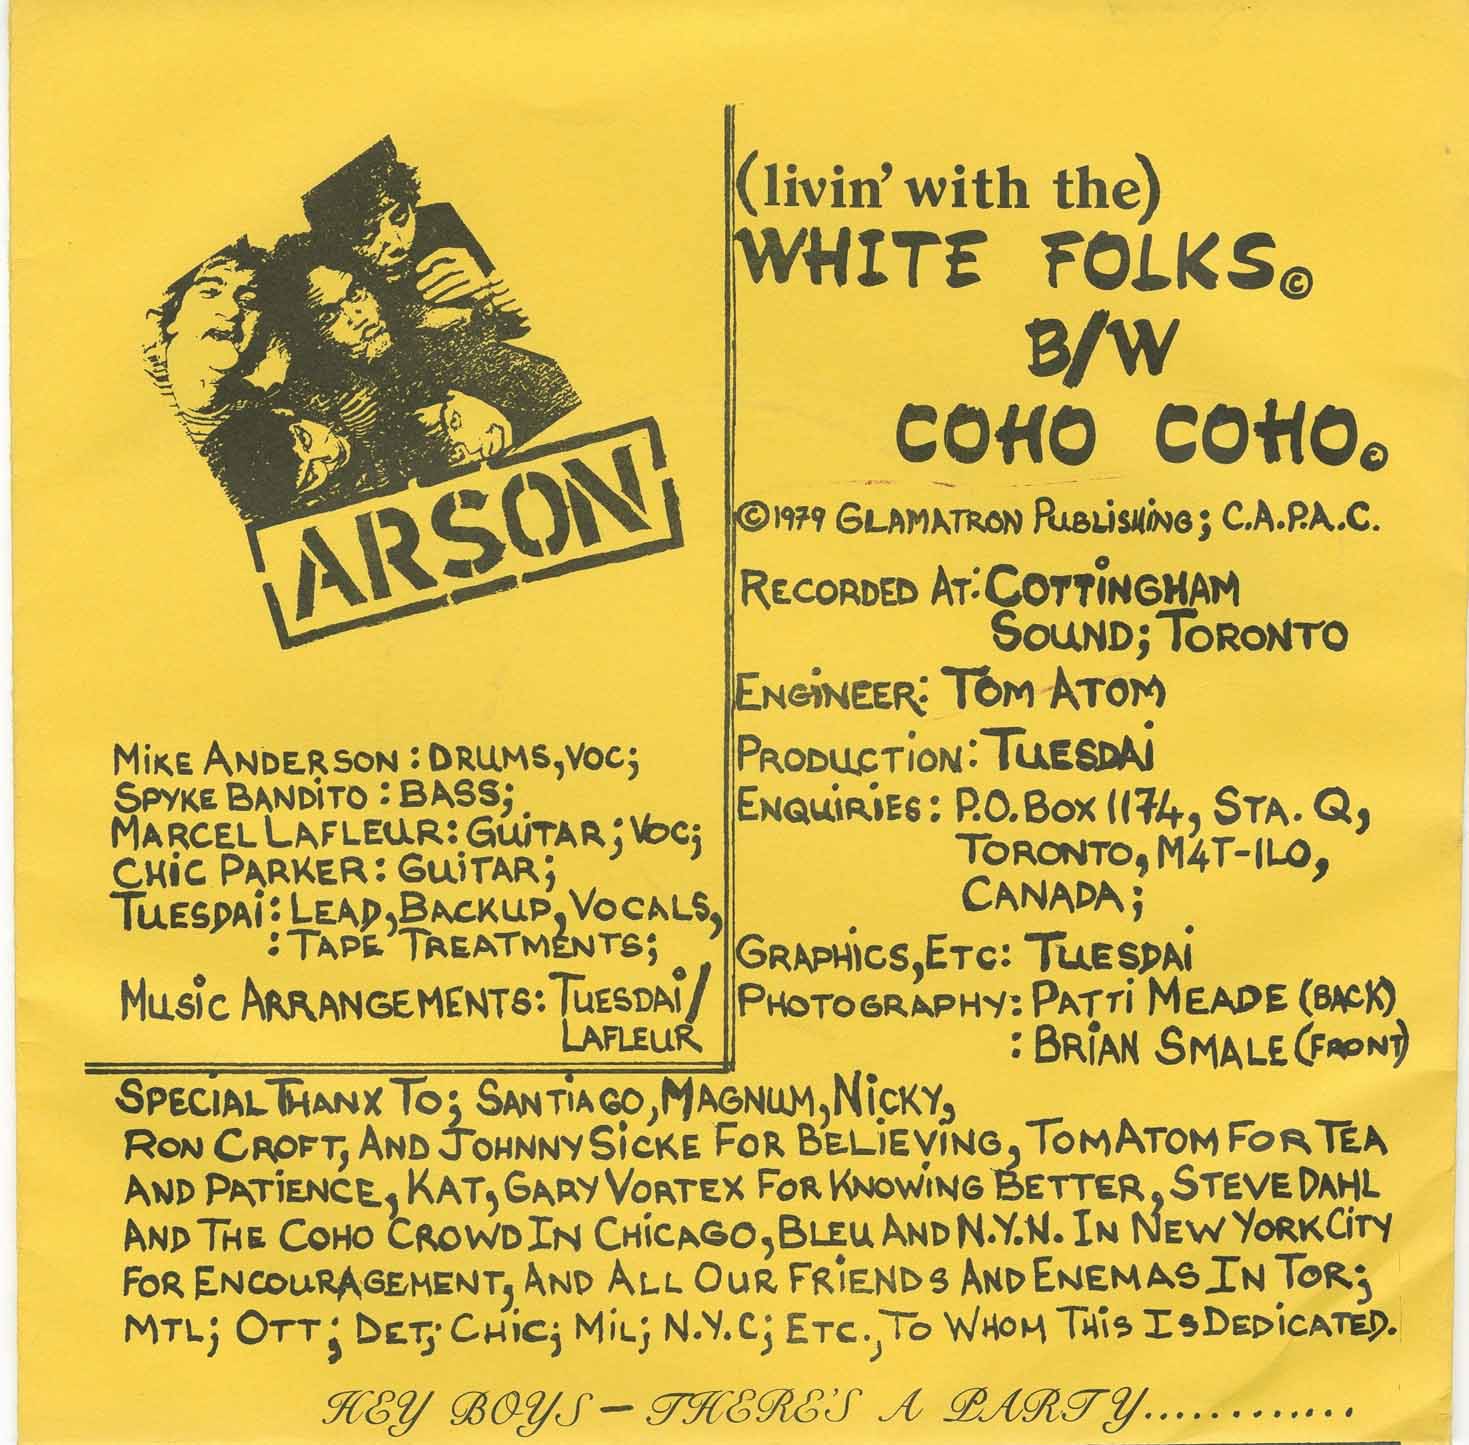 ARSON
Mike Anderson: Drums, Voc;
Spyke Bandito: Bass;
Marcel Lafleur: Guitar; Voc;
Chic Parker: Guitar;
Tuesdai: Lead, Backup, Vocals,
: Tape Treatments;
Music Arrangements: Tuesdai/
Lafleur
(livin' with the)
WHITE FOLKS©
B/W
COHO COHO©
©1979 Glamatron Publishing; C.A.P.A.C.
Recorded At: Cottingham
Sound; Toronto
Engineer: Tom Atom
Production: Tuesdai
Enquiries: P.O. Box 1174, Sta. Q,
Toronto, M4T-1L0,
Canada;
Graphics, Etc: Tuesdai
Photography: Patti Meade (back)
: Brian Smale (front)
Special Thanx To; Santiago, Magnum, Nicky,
Ron Croft, And Johnny Sicke For Believing, Tom Atom For Tea
And Patience, Kat, Gary Vortex For Knowing Better, Steve Dahl
And The Coho Crowd In Chicago, Bleu And N.Y.N. In New York City
For Encouragement, And All Our Friends And Enemas In Tor;
Mtl; Ott; Det; Chic; Mil; N.Y.C; Etc., To Whom This Is Dedicated.
HEY BOYS – THERE'S A PARTY............